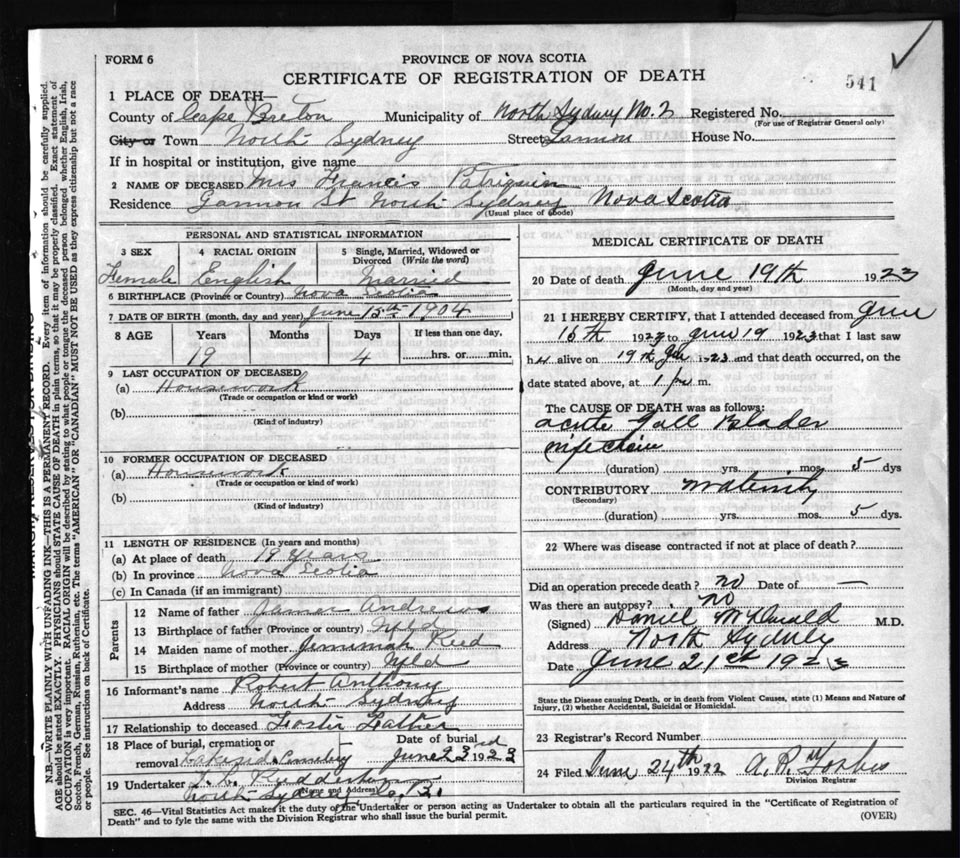 FORM 6
PROVINCE OF NOVA SCOTIA
CERTIFICATE OF REGISTRATION OF DEATH
541
1 PLACE OF DEATH—
County of Cape Breton Municipality of North Sydney No. 2 Registered No.
(For use of Registrar General only)
City or Town North Sydney Street House No.
If in hospital or institution, give name
2 NAME OF DECEASED Mrs Francis Patriquin
Residence Gannon St North Sydney Nova Scotia
(Usual place of abode)
PERSONAL AND STATISTICAL INFORMATION
3 SEX 4 RACIAL ORIGIN 5 Single, Married, Widowed or Divorced (Write the word)
Female English Married
6 BIRTHPLACE (Province or Country) Nova Scotia
7 DATE OF BIRTH (month, day and year) June 15th 1904
8 AGE Years Months Days If less than one day,
19 4 hrs. or min.
9 LAST OCCUPATION OF DECEASED
(a) Housework
(Trade or occupation or kind or work)
(b)
(Kind of industry)
10 FORMER OCCUPATION OF DECEASED
(a) Housework
(Trade or occupation or kind or work)
(b)
(Kind of industry)
11 LENGTH OF RESIDENCE (In years and months)
(a) At place of death 19 years
(b) In province Nova Scotia
(c) In Canada (if an immigrant)
Parents
12 Name of father James Andrews
13 Birthplace of father (Province or country) Nfld
14 Maiden name of mother Jemimah Reed
15 Birthplace of mother (Province or country) Nfld
16 Informant's name Robert Anthony
Address North Sydney
17 Relationship to deceased Foster Father
18 Place of burial, cremation or removal Lakeside Cemetery Date of burial June 23rd 1923
19 Undertaker
(Name and Address)
North Sydney C.B.
MEDICAL CERTIFICATE OF DEATH
20 Date of death June 19th 1923
(Month, day and year)
21 I HEREBY CERTIFY, that I attended deceased from June
15th 1923 to June 19 1923 that I last saw
her alive on 19th June 1923 and that death occurred, on the
date stated above, at 1 p.m.
The CAUSE OF DEATH was as follows:
acute Gall Blader
infection
(duration) yrs. mos. 5 dys
CONTRIBUTORY maternity
(Secondary)
(duration) yrs. mos. 5 dys.
22 Where was disease contracted if not at place of death?
Did an operation precede death? no Date of —
Was there an autopsy? no
(Signed) Daniel McDonald M.D.
Address North Sydney
Date June 21st 1923
State the Disease causing Death, or in death from Violent Causes, state (1) Means and Nature of
Injury, (2) whether Accidental, Suicidal or Homicidal.
23 Registrar's Record Number
24 Filed June 24th 1922 A. R. Forbes
Division Registrar
SEC. 46—Vital Statistics Act makes it the duty of the Undertaker or person acting as Undertaker to obtain all the particulars required in the "Certificate of Registration of
Death" and to fyle the same with the Division Registrar who shall issue the burial permit.
(OVER)
N.B.—WRITE PLAINLY WITH UNFADING INK—THIS IS A PERMANENT RECORD. Every item of information should be carefully supplied.
AGE should be stated EXACTLY. PHYSICIANS should STATE CAUSE OF DEATH in plain terms, so that it may be properly classified. Exact statement of
OCCUPATION is very important. RACIAL ORIGIN will be described by stating to what people or tongue the deceased person belonged whether English, Irish,
Scotch, French, German, Russian, Ruthenian, etc. The terms "AMERICAN" OR "CANADIAN" MUST NOT BE USED as they express citizenship but not a race
or people. See instructions on back of Certificate.